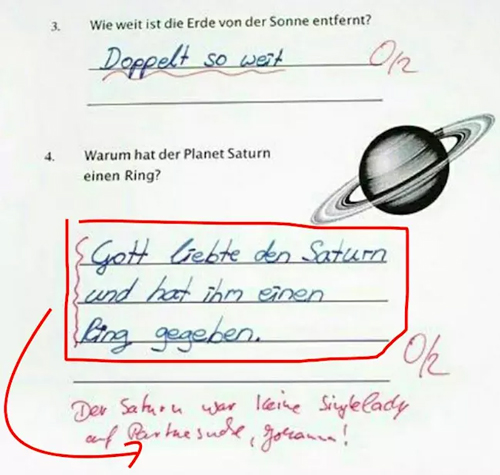 3. Wie weit ist die Erde von der Sonne entfernt?
Doppelt so weit
0/2
4. Warum hat der Planet Saturn
einen Ring?
Gott liebte den Saturn
und hat ihm einen
Ring gegeben.
0/2
Der Saturn war keine Singlelady
auf Partnersuche, Johanna!